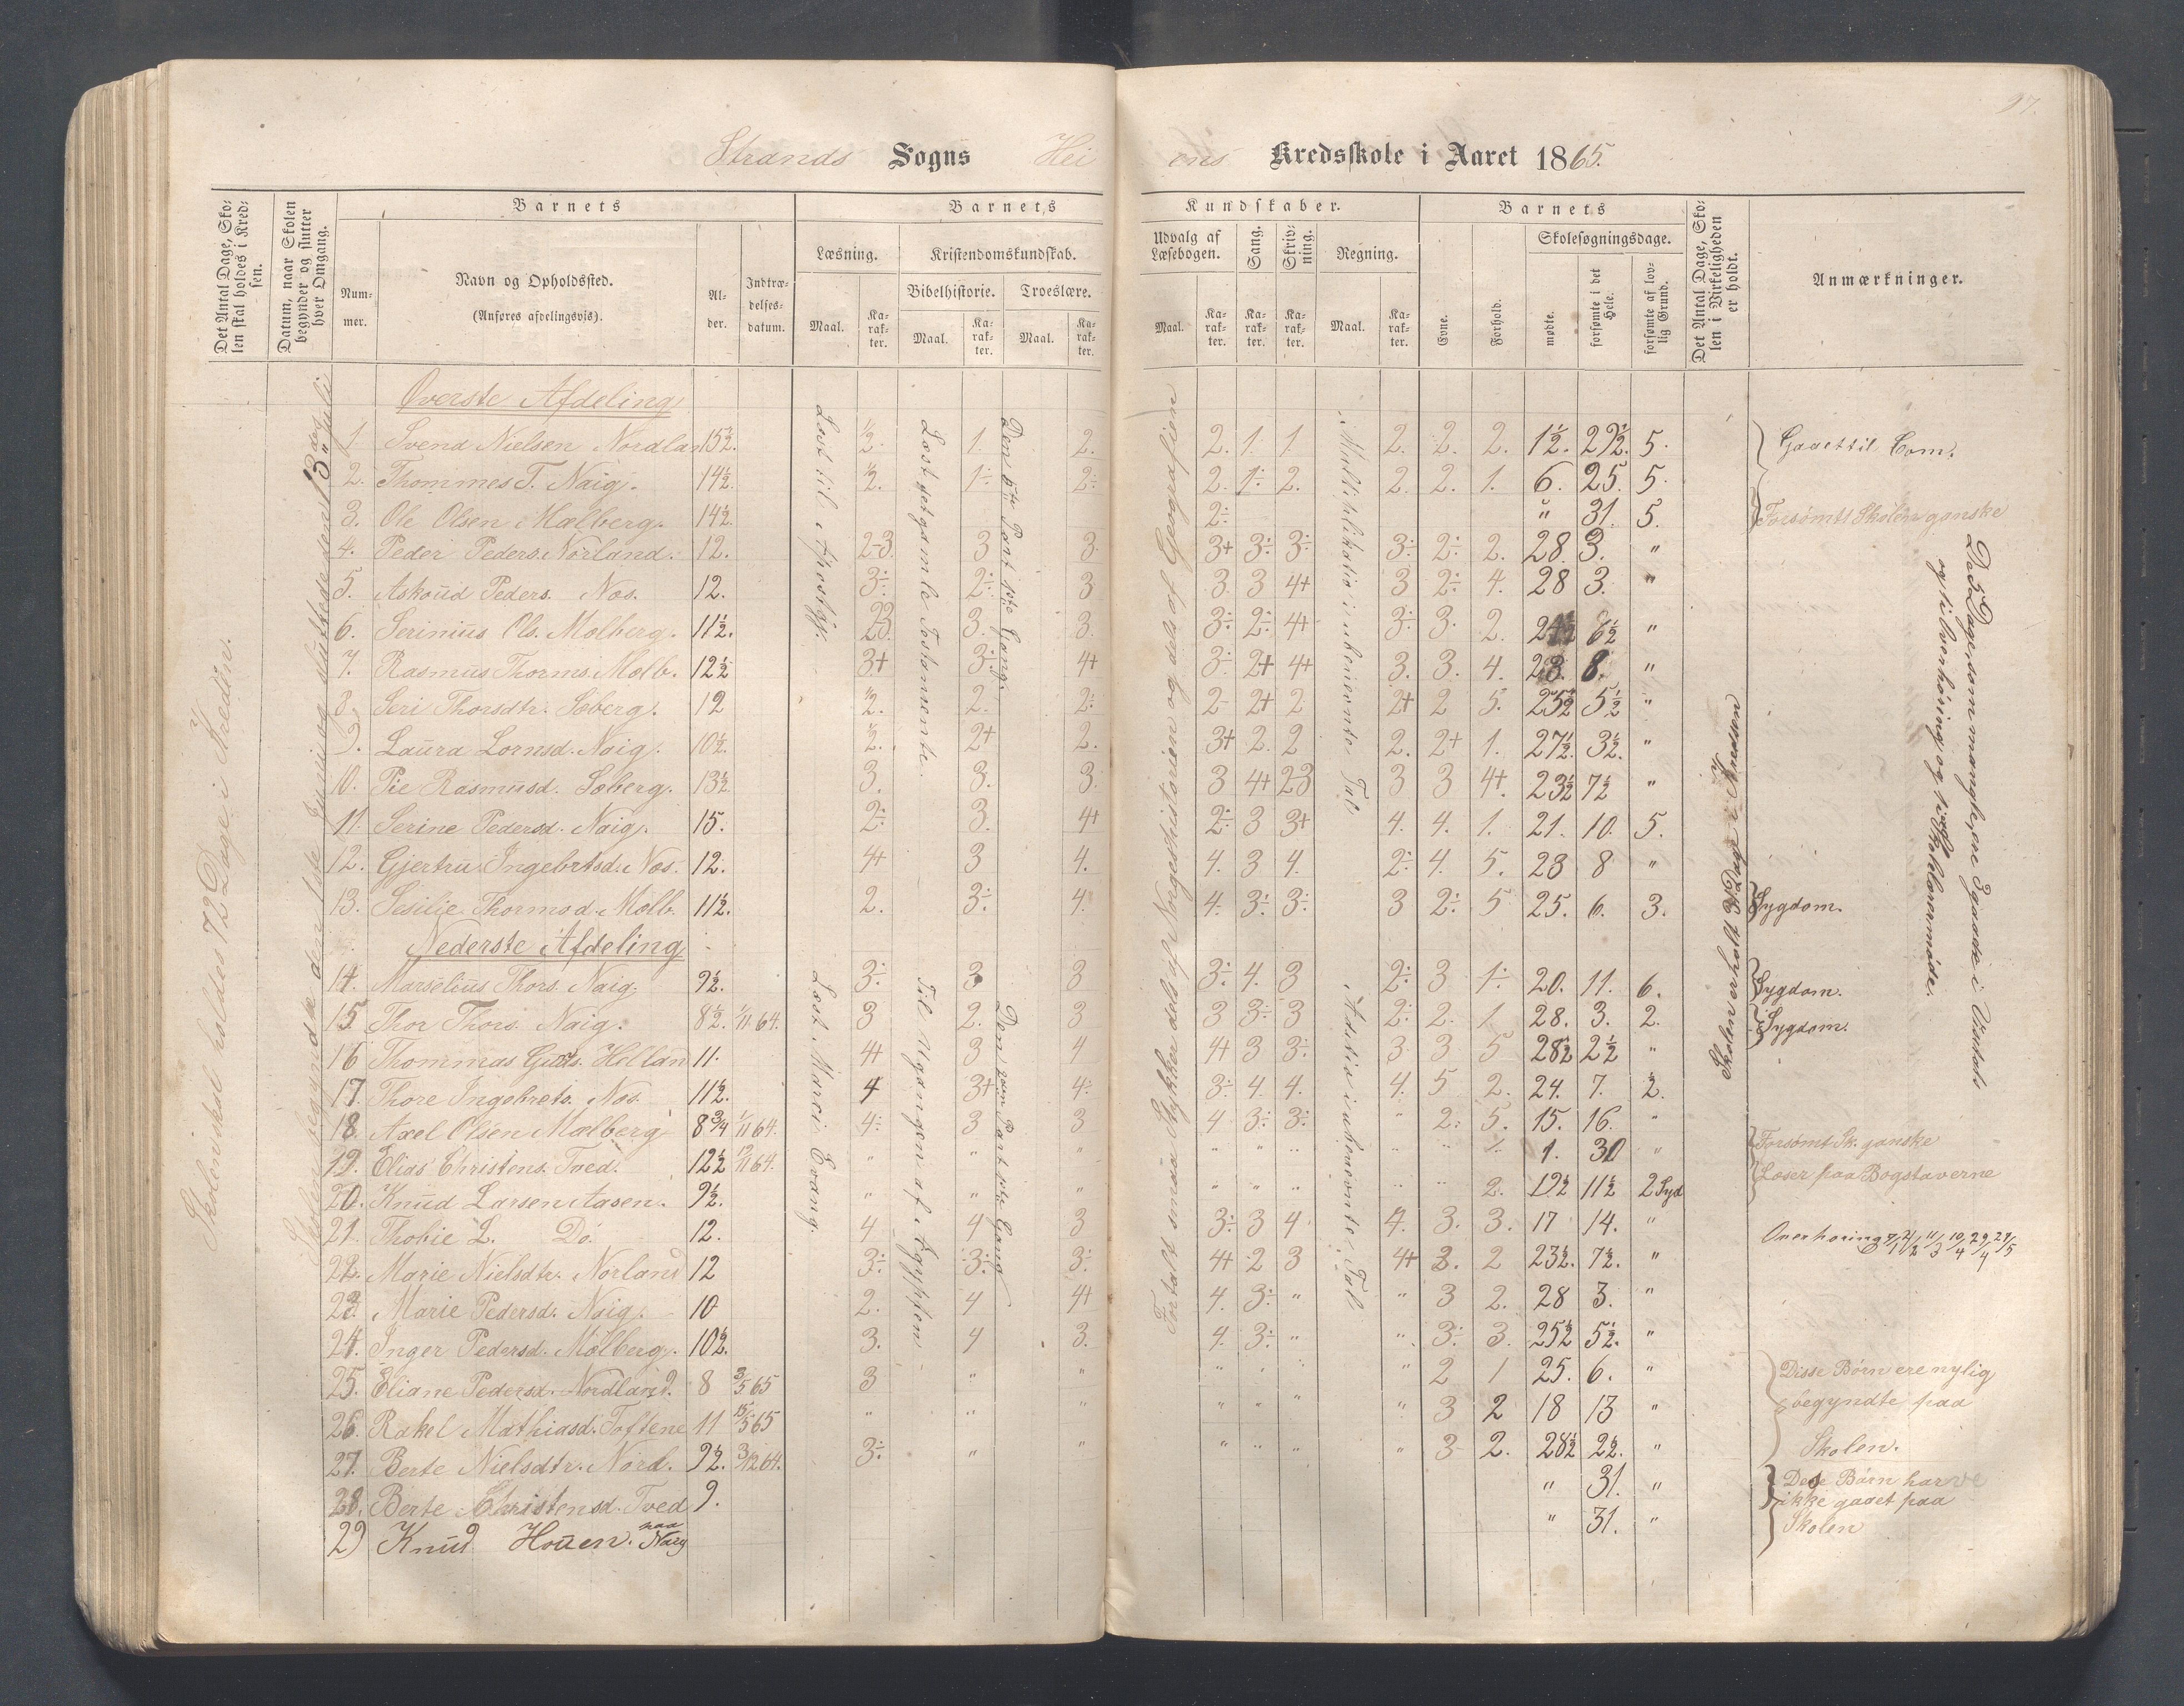 97.
Strands Sogns Heiens Kredsskole i Aaret 1865.
Det Antal Dage, Skolen skal holdes i Kredsen.
Datum, naar Skolen begynder og slutter hver Omgang.
Barnets
Nummer.
Navn og Opholdssted.
(Anføres afdelingsvis).
Alder.
Indtrædelsesdatum.
Barnets Kundskaber.
Læsning.
Maal.
Karakter.
Kristendomskundskab.
Bibelhistorie.
Maal.
Karakter.
Troeslære.
Maal.
Karakter.
Udvalg af Læsebogen.
Maal.
Karakter.
Sang.
Karakter.
Skrivning.
Karakter.
Regning.
Maal.
Karakter.
Barnets
Evne.
Forhold.
Skolesøgningsdage.
mødte.
forsømte i det Hele.
forsømte af lovlig Grund.
Det Antal Dage, Skolen i Virkeligheden er holdt.
Anmærkninger.
Skolen skal holdes 72 Dage i Kredsen.
Skolen begyndte den 1ste Juni og sluttede den 13de Juli
Øverste Afdeling
1. Svend Nielsen Nordlan 15½. ½. 1. 2. 2. 1. 1. 2. 2. 2. 1½. 29½. 5. Gaaet til Com.
2. Thommes T. Naig. 14½. ½. 1÷ 2÷ 2. 1÷ 2. 2. 2. 1. 6. 25. 5.
3. Ole Olsen Mælberg. 14½. 2÷ " 31. 5. Forsømt Skolen ganske
4. Peder Peders. Norland. 12. 2-3. 3 3. 3+ 3÷ 3÷ 3÷ 2÷ 2. 28. 3. "
5. Askoud Peders. Nos. 12. 3÷ 2÷ 3 3. 3 4+ 3 2÷ 4. 28 3. "
6. Serinius Ols. Molberg. 11½. 23. 3. 3. 3÷ 2÷ 4+ 3÷ 3. 2. 24½ 6½ "
7. Rasmus Thorms. Molb. 12½ 3+ 3÷ 4+ 3÷ 2+ 4+ 3. 3. 4. 23. 8. "
8. Seri Thorsdtr. Soberg. 12 ½. 2. 2÷ 2- 2+ 2 2+ 2 5. 25½ 5½ "
9. Laura Lornsd. Naig. 10½. ½. 2+ 2. 3+ 2. 2 2. 2+ 1. 27½. 3½. "
10. Pie Rasmusd. Soberg. 13½ 3. 3. 3. 3 4+ 23 3 3 4+. 23½ 7½ "
11. Serine Pedersd. Naig. 15. 2÷ 3. 4+ 2÷ 3 3+ 4. 4. 1. 21. 10. 5.
12. Gjertru Ingebrtsd. Nos. 12. 4+ 3 4. 4. 3 4. 2÷ 4. 5. 23 8 "
13. Sesilie Thormsd. Molb. 11½. 2. 3÷ 4. 4. 3÷ 3÷ 3 2÷ 5 25. 6. 3. Sygdom.
Nederste Afdeling
14. Marselius Thors. Naig. 9½. 3÷ 3 3 3÷ 4. 3 2÷ 3 1÷ 20. 11. 6. Sygdom.
15. Thor Thors. Naig. 8½. 1/11 64. 3 2. 3 3 3÷ 3 2÷ 2. 1 28. 3. 2. Sygdom.
16 Thommas Guds. Hollan 11. 4+ 3 4 4+ 3 3÷ 3 3 5 28½ 2½ "
17. Thore Ingebrets. Nos. 11½. 4 3+ 4÷ 3÷ 4. 4. 4. 5 2. 24. 7. ½.
18. Axel Olsen Mælberg 8¾ 1/11 64. 4÷ 3 3 4 3÷ 3÷ " 2÷ 5. 15. 16. "
19. Elias Christens. Tved. 12½ 64. " " " " " " 1. 30 " Forsømt Sk. ganske
20. Knud Larsen Aasen. 9½. " " " " " " " " 2. 19½ 11½ 2 Syd Læser paa Bogstaverne
21. Thobie L. Do. 12. 4 4 3 3÷ 3 4 4. 3. 3. 17 14. "
22. Marie Nielsdtr. Norland 12 3÷ 3÷ 3÷ 4+ 2 3 4+ 3. 2 23½. 7½. "
23. Marie Pedersd. Naig. 10 2. 4 4+ 4. 3÷ " " 3 2. 28 3. "
24. Inger Pedersd. Mölberg. 10½. 3. 4 3. 4. 3÷ " " 3÷ 3. 25½ 5½. "
25. Eliane Pedersd. Nordland. 8 3/5 65 3 " " " " " " 2 1 25. 6. "
26. Rakel Mathiasd. Toftene 11 15/5 65 " " " " " " " 3 2 18 13 "
27. Berte Nielsdtr. Nord. 9½. 3/12 64. 3÷ " " " " " " 3 2. 28½ 2½. "
28. Berte Christensd. Tved 9. " 31. "
29 Knud Houen. paa Naig " 31. "
Disse Børn ere nylig
begyndte paa
Skolen.
Dese Børn harve
ikke gaaet paa
Skolen
Læst til Apostgj.
Læst det gamle Testamente.
Den 5te Part 1ste Gang.
Fortalt smaa Stykker dels af Norgeshistorien og dels af Geografien
Multiplikatio i ubenævnte Tal
Læst Marci Evang.
Til Udgangen af Ægypten
Den 2den Part 1ste Gang
Aditio i ubenævnte Tal
Skolen er holt 31 Dage i Kredsen
De 5 Dage, som mangle, ene 3 gaaede i Visitats
og til overhøring og ved Skolelærermøde.
Overhøring